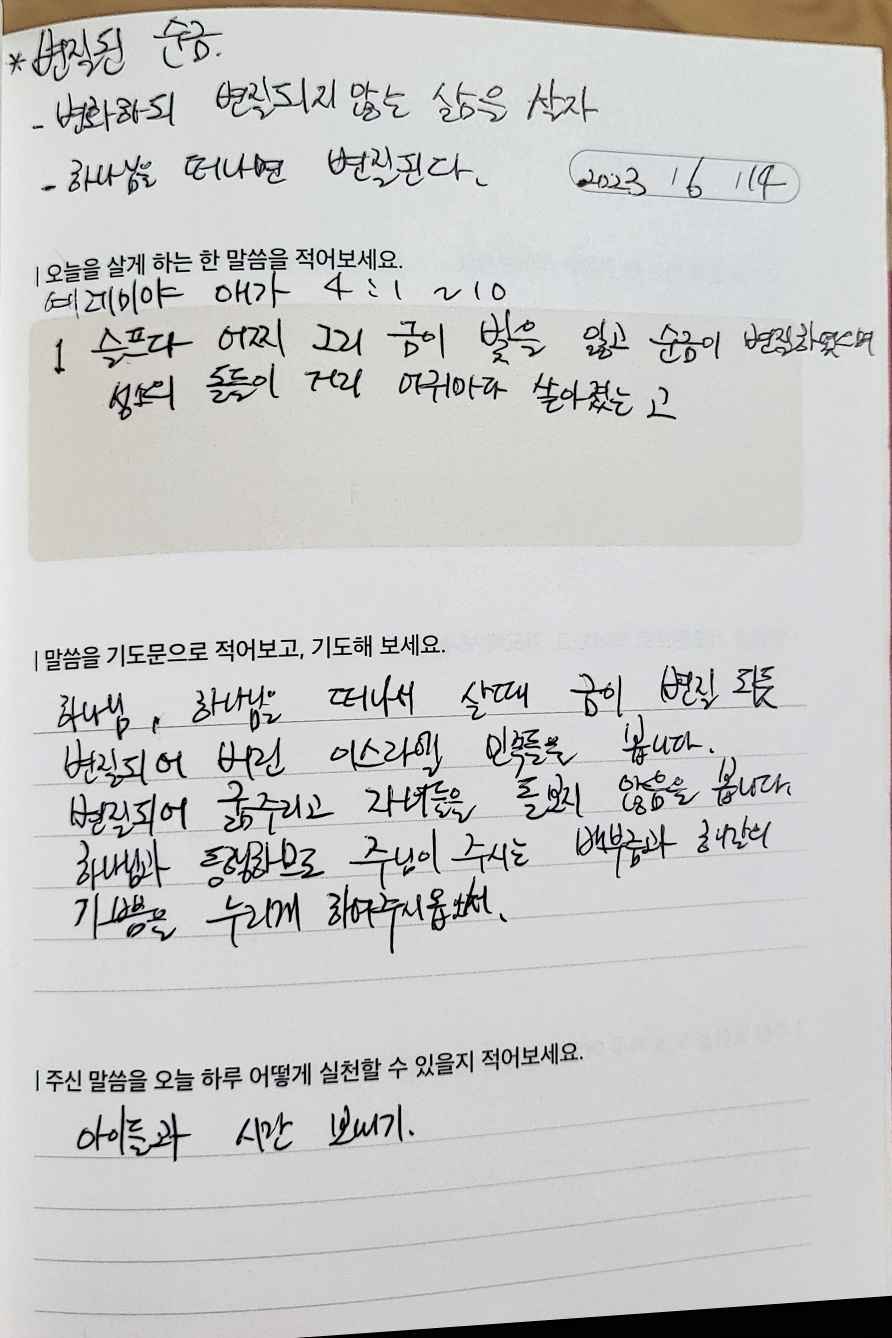 * 변질된 순금.
- 변화하되 변질되지 않는 삶을 살자
- 하나님을 떠나면 변질된다.
2023 / 6 / 14
오늘을 살게 하는 한 말씀을 적어보세요.
예레미야 애가 4:1~10
1 슬프다 어찌 그리 금이 빛을 잃고 순금이 변질하였으며
성소의 돌들이 거리 어귀마다 쏟아졌는고
말씀을 기도문으로 적어보고, 기도해 보세요.
하나님, 하나님을 떠나서 살때 금이 변질 되듯
변질되어 버린 이스라엘 민족들을 봅니다.
변질되어 굶주리고 자녀들을 돌보지 않음을 봅니다.
하나님과 동행하므로 주님이 주시는
기쁨을 누리게 하여주시옵소서.
주신 말씀을 오늘 하루 어떻게 실천할 수 있을지 적어보세요.
아이들과 시간 보내기.